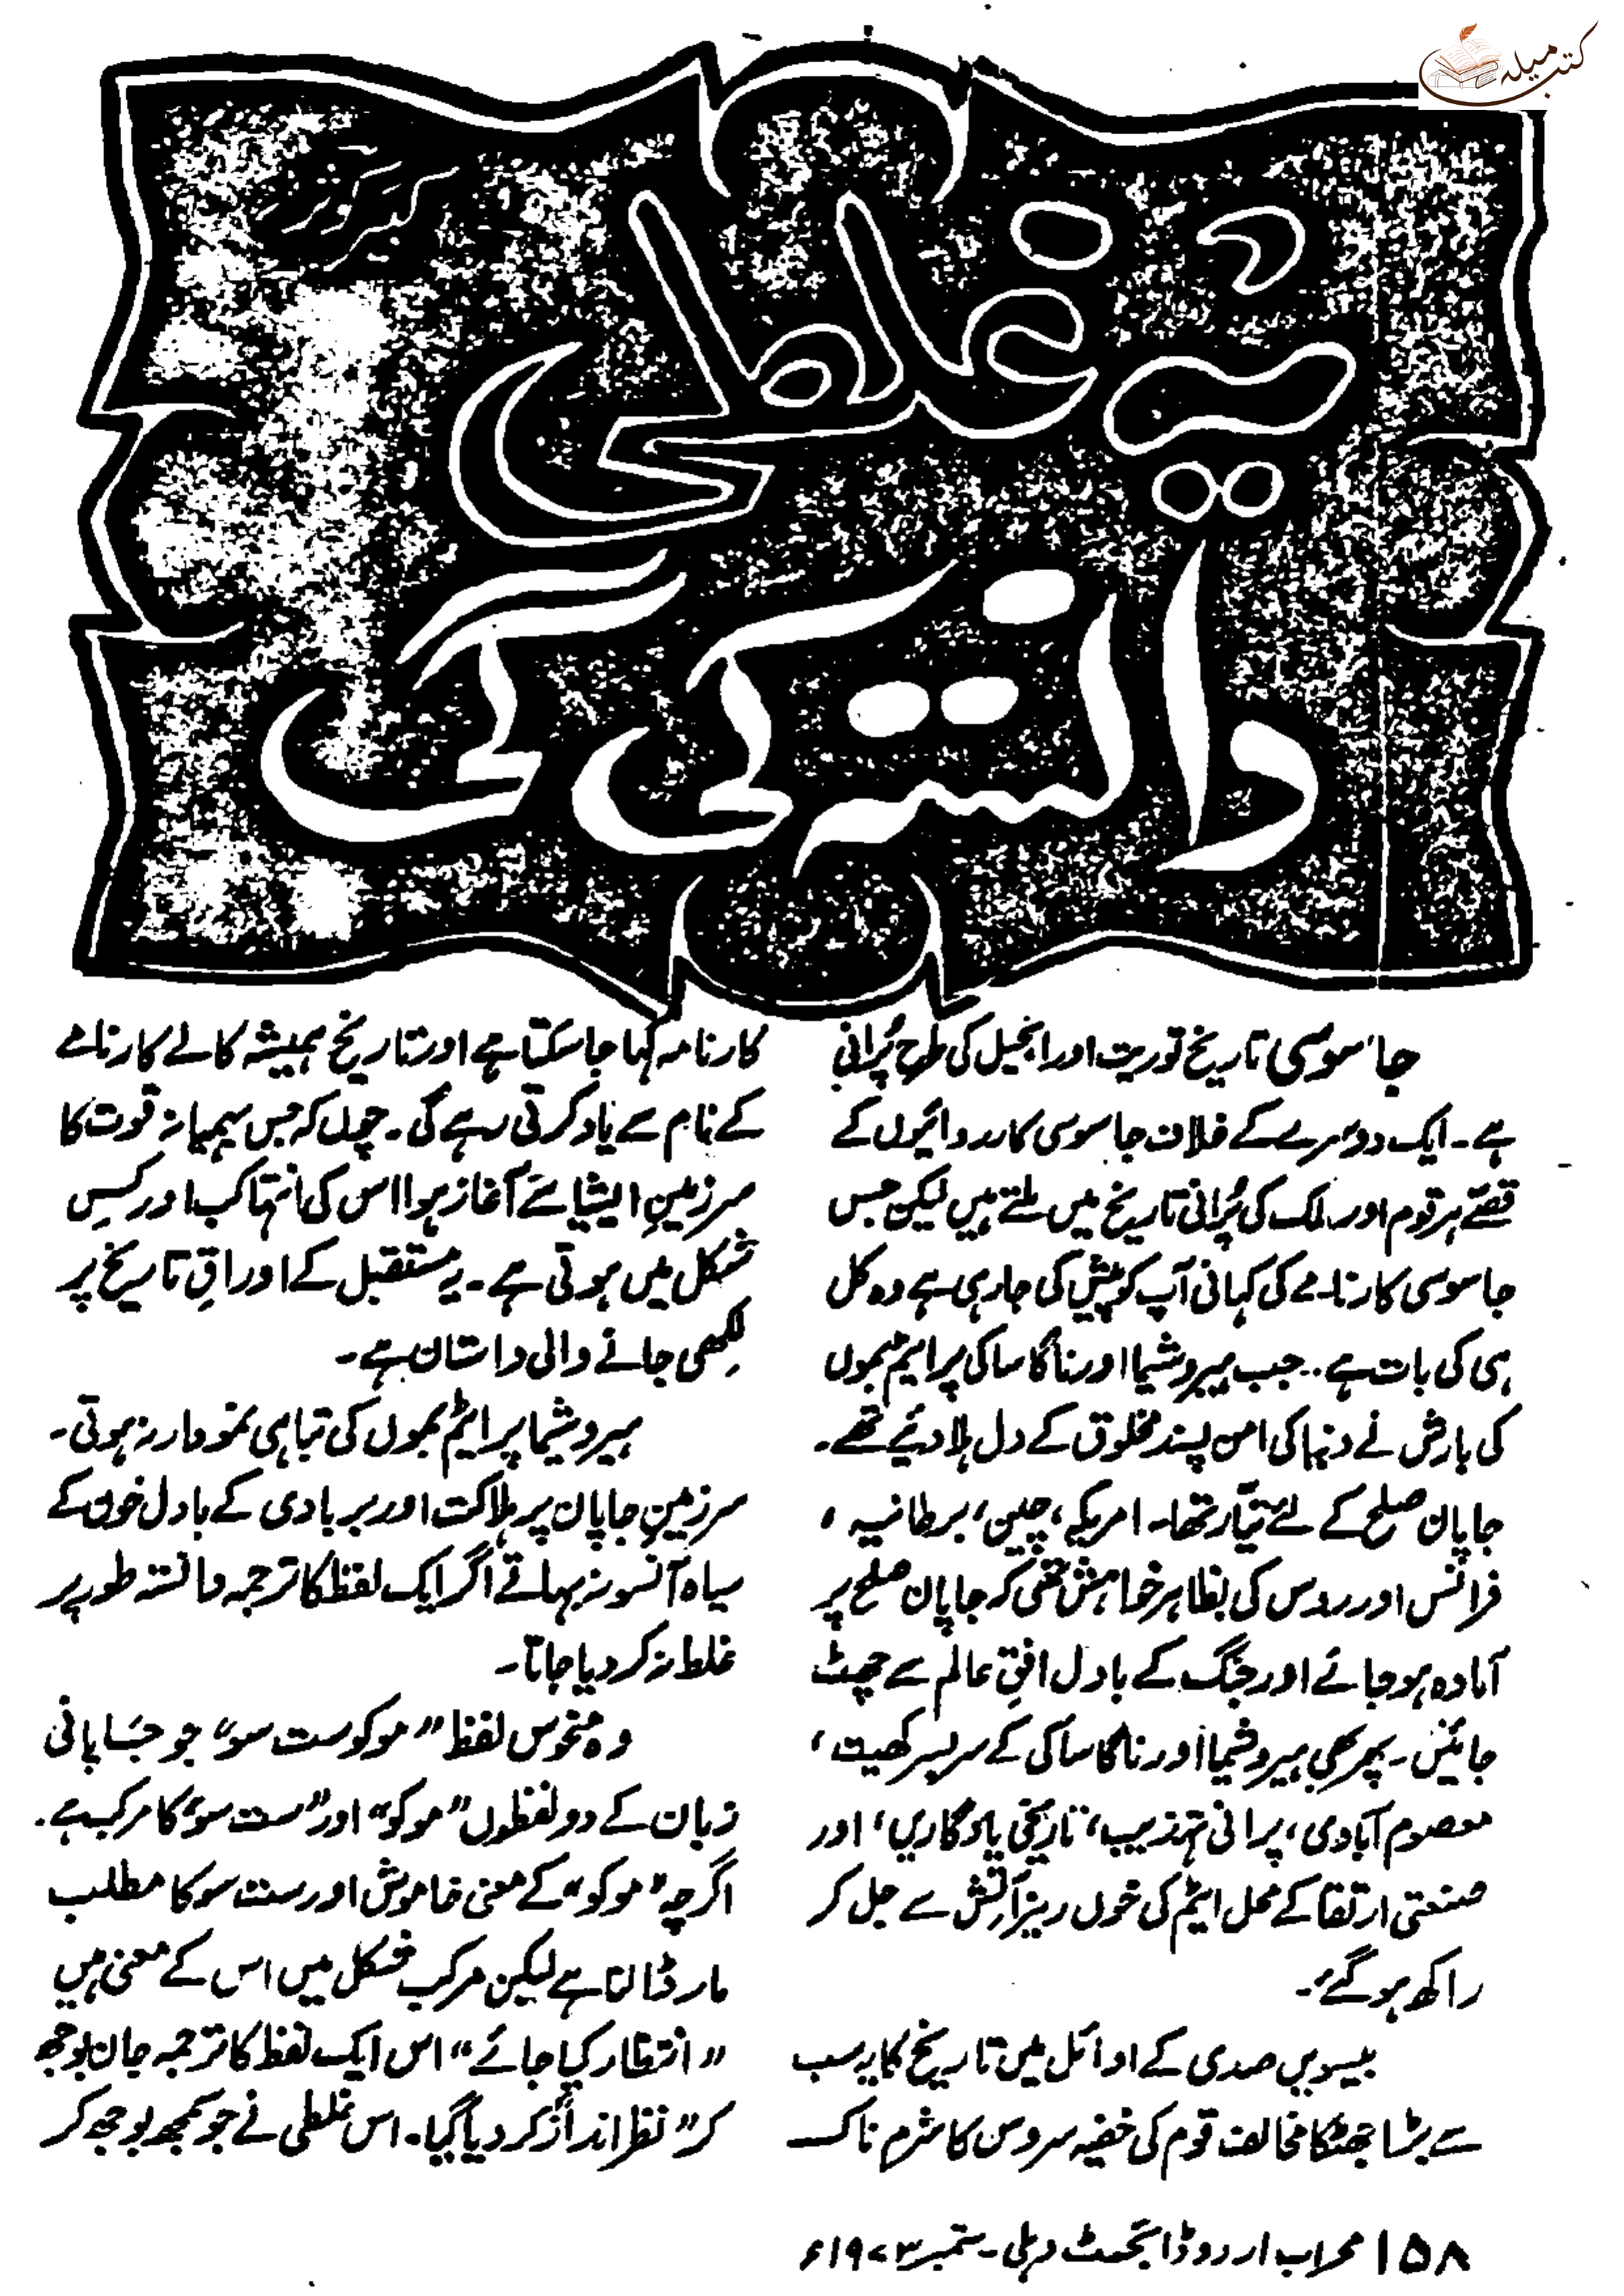 کتب میلہ
کبیر کوثر
یہ غلطی
دانستہ کی گئی
جاسوسی تاریخ توریت اور انجیل کی طرح پُرانی
ہے۔ ایک دوسرے کے خلاف جاسوسی کارروائیوں کے
قصّے ہر قوم اور ملک کی پُرانی تاریخ میں ملتے ہیں لیکن جس
جاسوسی کارنامے کی کہانی آپ کو پیش کی جا رہی ہے وہ کل
ہی کی بات ہے۔۔ جب ہیروشیما اور ناگاساکی پر ایٹم بموں
کی بارش نے دنیا کی امن پسند مخلوق کے دل ہلا دیئے تھے۔
جاپان صلح کے لئے تیّار تھا۔ امریکہ، چین، برطانیہ،
فرانس اور روس کی بظاہر خواہش تھی کہ جاپان صلح پر
آمادہ ہو جائے اور جنگ کے بادل افقِ عالم سے چھٹ
جائیں۔ پھر بھی ہیروشیما اور ناگاساکی کے سرسبز کھیت،
معصوم آبادی، پرانی تہذیب، تاریخی یادگاریں، اور
صنعتی ارتقا کے محل ایٹم کی خوں ریز آتش سے جل کر
راکھ ہو گئے۔
بیسویں صدی کے اوائل میں تاریخ کا یہ سب
سے بڑا جھٹکا مخالف قوم کی خفیہ سروس کا شرم ناک
کارنامہ کہا جا سکتا ہے اور تاریخ ہمیشہ کالے کارنامے
کے نام سے یاد کرتی رہے گی۔ چوں کہ جس بہیمانہ قوت کا
سرزمینِ ایشیا سے آغاز ہوا اس کی انتہا کب اور کس
شکل میں ہوتی ہے۔ یہ مستقبل کے اوراقِ تاریخ پر
لکھی جانے والی داستان ہے۔
ہیروشیما پر ایٹم بموں کی تباہی نمودار نہ ہوتی۔
سرزمینِ جاپان پر ہلاکت اور بربادی کے بادل خون کے
سیاہ آنسو نہ بہاتے اگر ایک لفظ کا ترجمہ دانستہ طور پر
غلط نہ کر دیا جاتا۔
وہ منحوس لفظ ”موکوست سو“ جو جاپانی
زبان کے دو لفظوں ”موکو“ اور ”ست سو“ کا مرکب ہے۔
اگرچہ ”موکو“ کے معنی خاموش اور ست سو کا مطلب
مار ڈالنا ہے لیکن مرکب شکل میں اس کے معنی ہیں
”انتظار کیا جائے“ اس ایک لفظ کا ترجمہ جان بوجھ
کر ”نظر انداز کر دیا گیا۔ اس غلطی نے جو سمجھ بوجھ کر
۱۵۸ محراب اردو ڈائجسٹ دہلی۔ ستمبر ۱۹۷۳ء